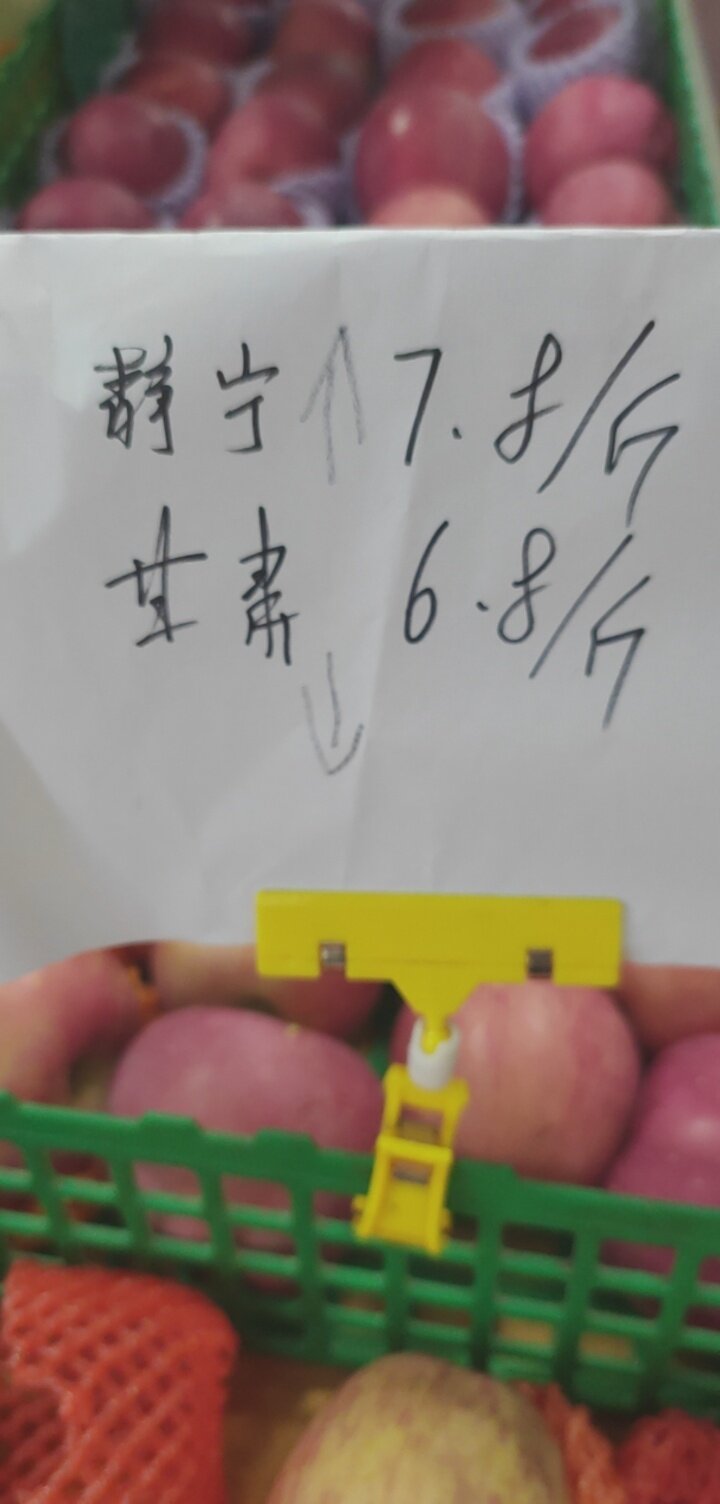 静宁↑ 7.8/斤
甘肃 6.8/斤
↓